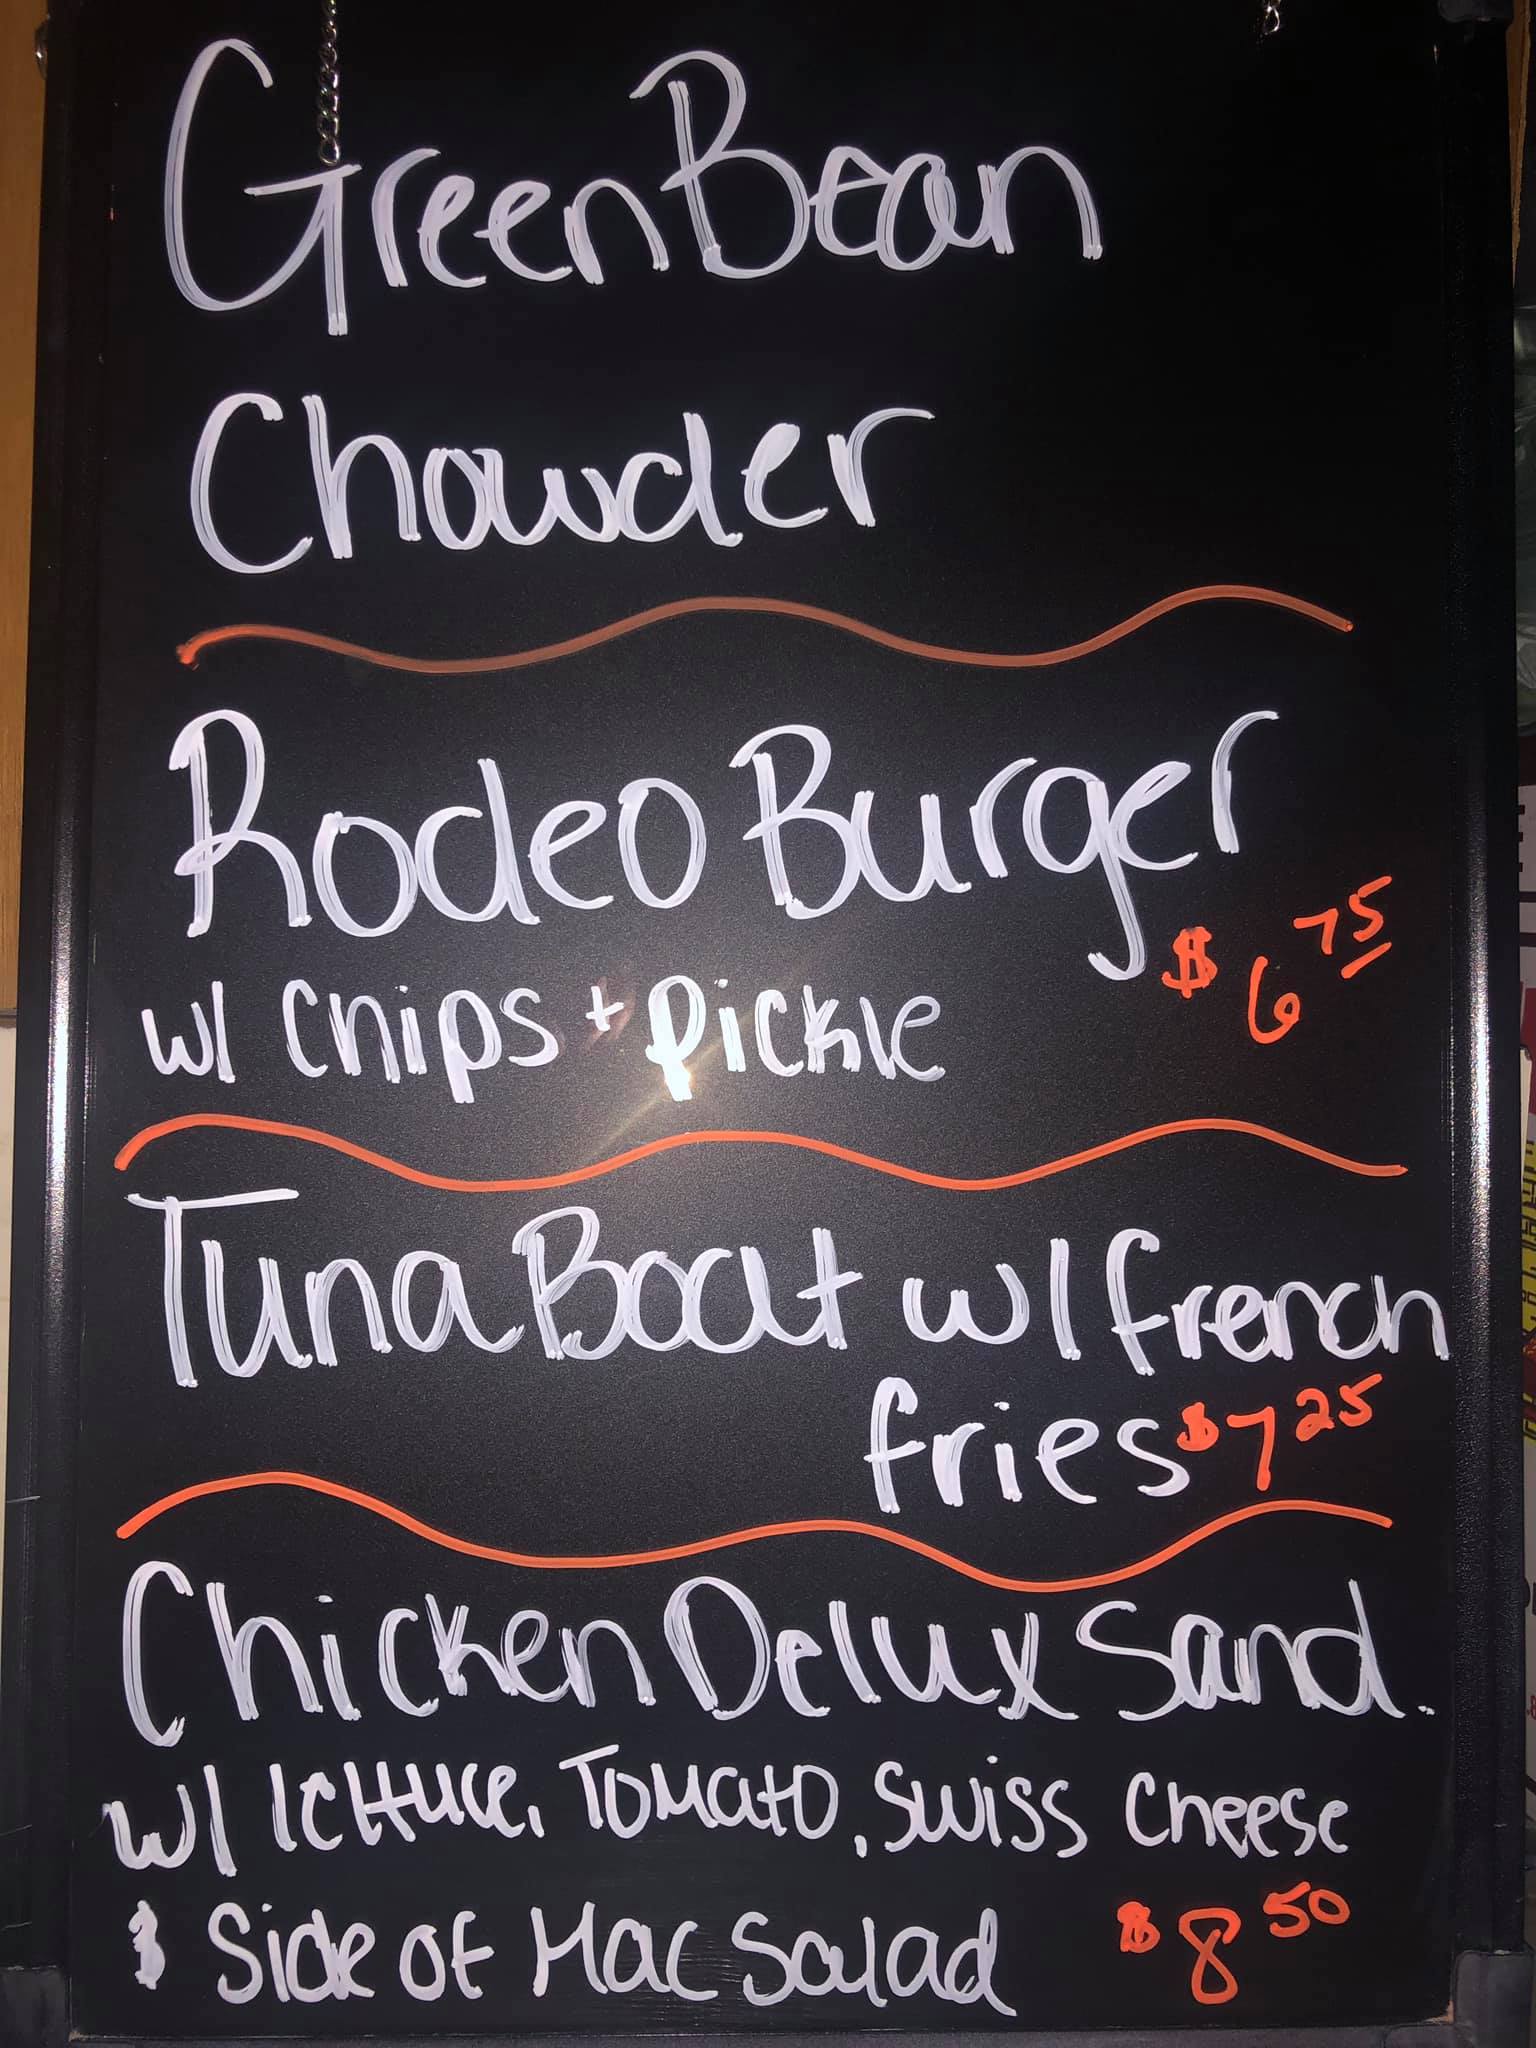 Green Bean
Chowder
Rodeo Burger
w/ chips + pickle $6 75
Tuna Boat w/ french
fries $7 25
Chicken Delux Sand.
w/ lettuce, Tomato, Swiss cheese
$ Side of Mac Salad $8 50